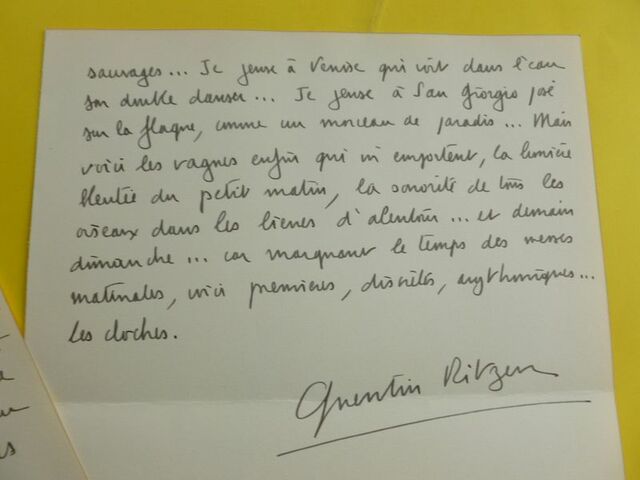 sauvages... Je pense à Venise qui voit dans l'eau
son double danser... Je pense à San Giorgio posé
sur la flaque, comme un morceau de paradis... Mais
voici les vagues enfin qui m'emportent, la lumière
bleutée du petit matin, la sonorité de tous les
oiseaux dans les lierres d'alentour... et demain
dimanche... car marquant le temps des messes
matinales, voici premières, discrètes, arythmiques...
les cloches.
Quentin Ritzen